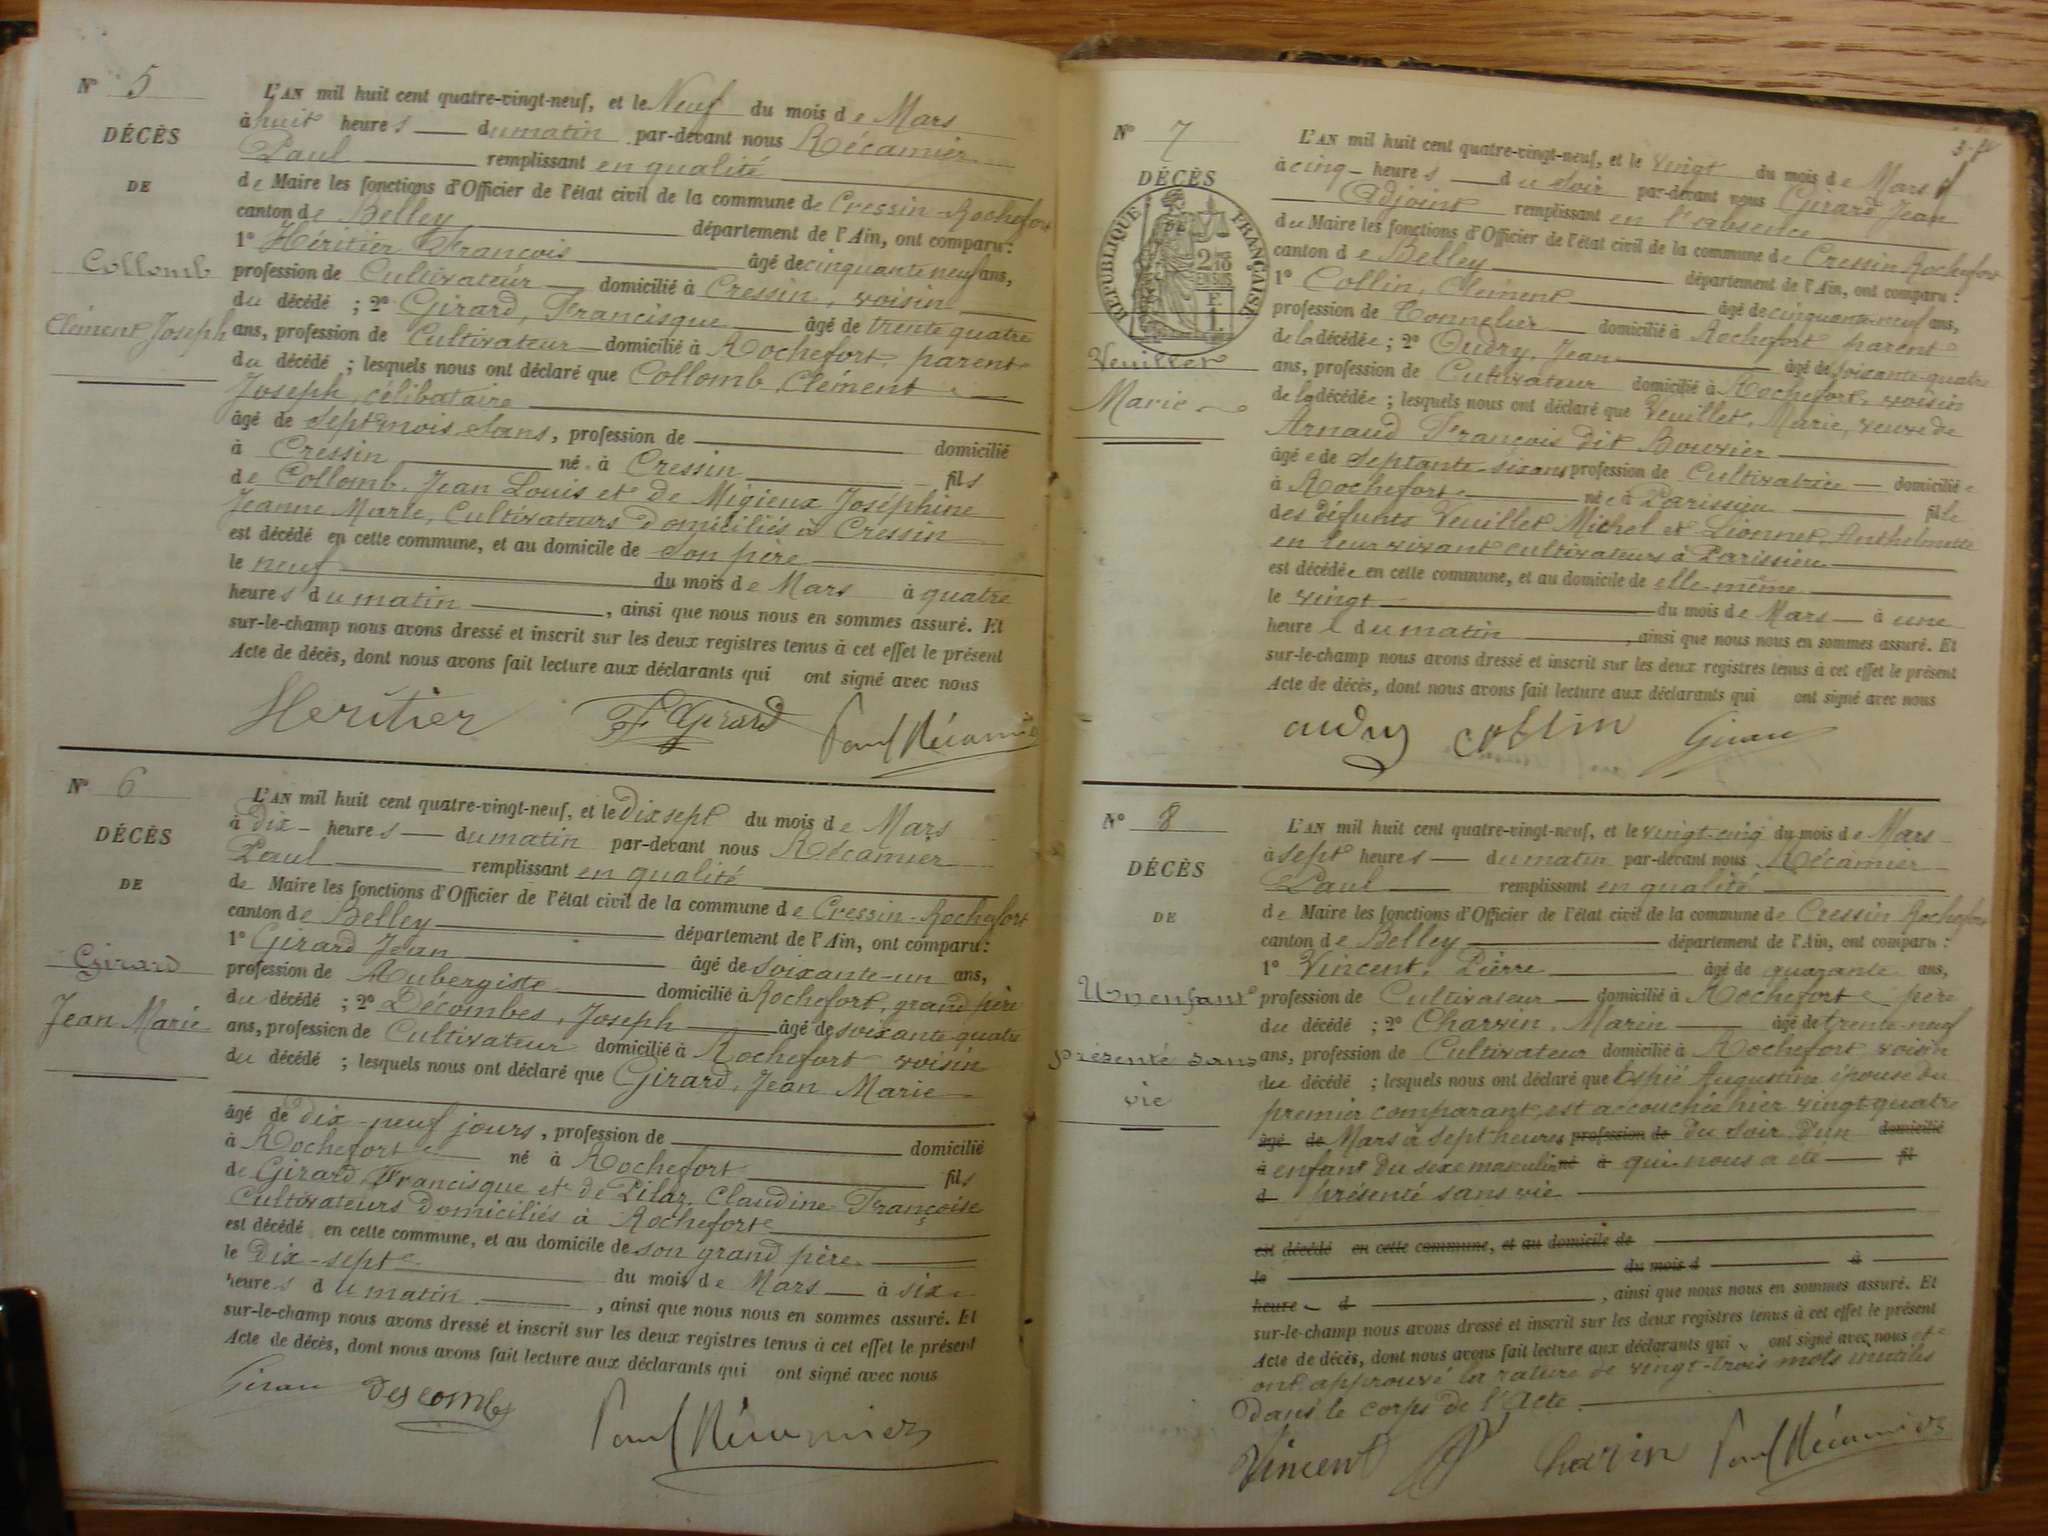 N° 5
DÉCÈS
DE
Collomb
Clément Joseph
L'AN mil huit cent quatre-vingt-neuf, et le Neuf du mois de Mars
à huit heures du matin par-devant nous Récamier
Paul remplissant en qualité
de Maire les fonctions d'Officier de l'état civil de la commune de Cressin-Rochefort
canton de Belley département de l'Ain, ont comparu :
1° Héritier François âgé de cinquante neuf ans,
profession de Cultivateur domicilié à Cressin, voisin
du décédé ; 2° Girard, Francisque âgé de trente quatre
ans, profession de Cultivateur domicilié à Rochefort, parent
du décédé ; lesquels nous ont déclaré que Collomb, Clément
Joseph, célibataire
âgé de sept mois sans, profession de domicilié
à Cressin né à Cressin fils
de Collomb, Jean Louis et de Migieux Joséphine
Jeanne Marie, Cultivateurs domiciliés à Cressin
est décédé en cette commune, et au domicile de son père
le neuf du mois de Mars à quatre
heures du matin, ainsi que nous nous en sommes assuré. Et
sur-le-champ nous avons dressé et inscrit sur les deux registres tenus à cet effet le présent
Acte de décès, dont nous avons fait lecture aux déclarants qui ont signé avec nous
Heritier F Girard Paul Récamier
N° 6
DÉCÈS
DE
Girard
Jean Marie
L'AN mil huit cent quatre-vingt-neuf, et le Dix sept du mois de Mars
à Dix heures du matin par-devant nous Récamier
Paul remplissant en qualité
de Maire les fonctions d'Officier de l'état civil de la commune de Cressin-Rochefort
canton de Belley département de l'Ain, ont comparu :
1° Girard Jean âgé de soixante-un ans,
profession de Aubergiste domicilié à Rochefort, grand père
du décédé ; 2° Décombes, Joseph âgé de soixante quatre
ans, profession de Cultivateur domicilié à Rochefort voisin
du décédé ; lesquels nous ont déclaré que Girard, Jean Marie
âgé de dix-neuf jours, profession de domicilié
à Rochefort né à Rochefort fils
de Girard, Francisque et de Pilaz, Claudine Françoise
Cultivateurs domiciliés à Rochefort
est décédé en cette commune, et au domicile de son grand père
le Dix-sept du mois de Mars à six
heures du matin, ainsi que nous nous en sommes assuré. Et
sur-le-champ nous avons dressé et inscrit sur les deux registres tenus à cet effet le présent
Acte de décès, dont nous avons fait lecture aux déclarants qui ont signé avec nous
Girau Descombes Paul Récamier
N° 7
DÉCÈS
DE
RÉPUBLIQUE FRANÇAISE
Veuillet
Marie
L'AN mil huit cent quatre-vingt-neuf, et le vingt du mois de Mars
à cinq heures du soir par-devant nous Girard Jean
Adjoint remplissant en l'absence
du Maire les fonctions d'Officier de l'état civil de la commune de Cressin Rochefort
canton de Belley département de l'Ain, ont comparu :
1° Collin, Clément âgé de cinquante-neuf ans,
profession de Tonnelier domicilié à Rochefort parent
de la décédée ; 2° Oudry, Jean âgé de soixante-quatre
ans, profession de Cultivateur domicilié à Rochefort, voisin
de la décédée ; lesquels nous ont déclaré que Veuillet, Marie, veuve de
Arnaud François dit Bouvier
âgée de septante-six ans profession de Cultivatrice domiciliée
à Rochefort née à Parissieu fille
des défunts Veuillet Michel et Lionnet, Anthelmette
en leur vivant cultivateurs à Parissieu
est décédée en cette commune, et au domicile de elle-même
le vingt du mois de Mars à une
heure du matin, ainsi que nous nous en sommes assuré. Et
sur-le-champ nous avons dressé et inscrit sur les deux registres tenus à cet effet le présent
Acte de décès, dont nous avons fait lecture aux déclarants qui ont signé avec nous
oudry collin Girau
N° 8
DÉCÈS
DE
Un enfant
présenté sans
vie
L'AN mil huit cent quatre-vingt-neuf, et le vingt-cinq du mois de Mars
à sept heures du matin par-devant nous Récamier
Paul remplissant en qualité
de Maire les fonctions d'Officier de l'état civil de la commune de Cressin Rochefort
canton de Belley département de l'Ain, ont comparu :
1° Vincent, Pierre âgé de quarante ans,
profession de Cultivateur domicilié à Rochefort père
du décédé ; 2° Charvin, Marin âgé de trente-neuf
ans, profession de Cultivateur domicilié à Rochefort voisin
du décédé ; lesquels nous ont déclaré que Augustine épouse du
premier comparant, est accouchée hier vingt quatre
âgé de Mars à sept heures profession de du soir d'un domicilié
à enfant du sexe masculin né à qui nous a été fil
d présenté sans vie
est décédé en cette commune, et au domicile de
le du mois d à
heure d , ainsi que nous nous en sommes assuré. Et
sur-le-champ nous avons dressé et inscrit sur les deux registres tenus à cet effet le présent
Acte de décès, dont nous avons fait lecture aux déclarants qui ont signé avec nous et
ont approuvé la rature de vingt-trois mots inutiles
dans le corps de l'Acte.
Vincent Charvin Paul Récamier